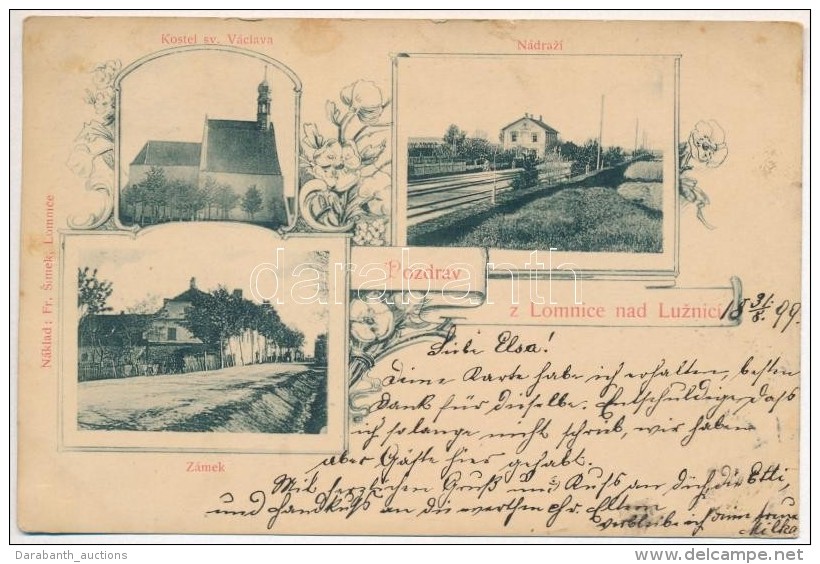 Kostel sv. Václava
Nádraží
Náklad: Fr. Šimek, Lomnice
darabanth
Pozdrav
z Lomnice nad Lužnicí
18 31/8. 99.
Zámek
Liebe Elsa!
Deine Karte habe ich erhalten, besten
Dank für dieselbe. Entschuldige daß
ich so lange nicht schrieb, wir haben
aber Gäste hier gehabt.
Mit herzlichen Gruß und Kuß an dich, die Etti,
und Handkuß an die werthen Eltern
verbleibe ich Deine treue
Milka
Darabanth_auctions
delcampe.net